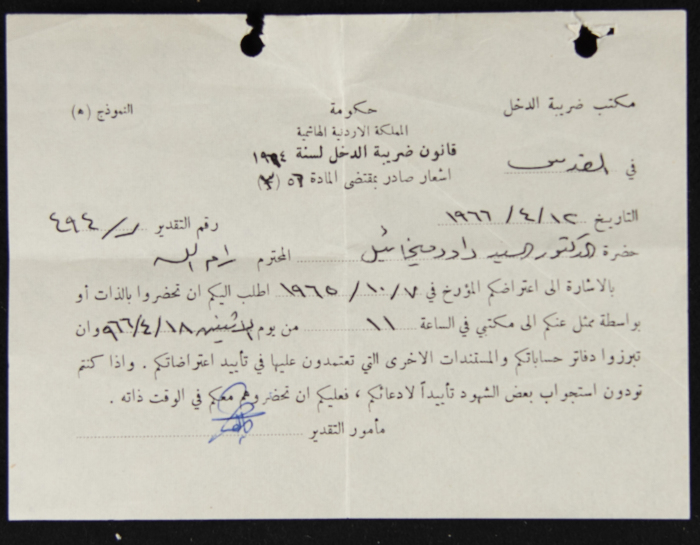 مكتب ضريبة الدخل
حكومة
النموذج (٥)
المملكة الاردنية الهاشمية
قانون ضريبة الدخل لسنة ١٩٦٤
في القدس
اشعار صادر بمقتضى المادة ٥٦ (٣)
التاريخ ١٩٦٦/٤/١٢
رقم التقدير ر/٤٩٤
حضرة الدكتور السيد داود ميخائيل المحترم رام الله
بالاشارة الى اعتراضكم المؤرخ في ١٩٦٥/١٠/٧ اطلب اليكم ان تحضروا بالذات أو
بواسطة ممثل عنكم الى مكتبي في الساعة ١١ من يوم الاثنين ٩٦٦/٤/١٨ وان
تبرزوا دفاتر حساباتكم والمستندات الاخرى التي تعتمدون عليها في تأييد اعتراضاتكم . واذا كنتم
تودون استجواب بعض الشهود تأييداً لادعائكم ، فعليكم ان تحضروهم معكم في الوقت ذاته .
مأمور التقدير